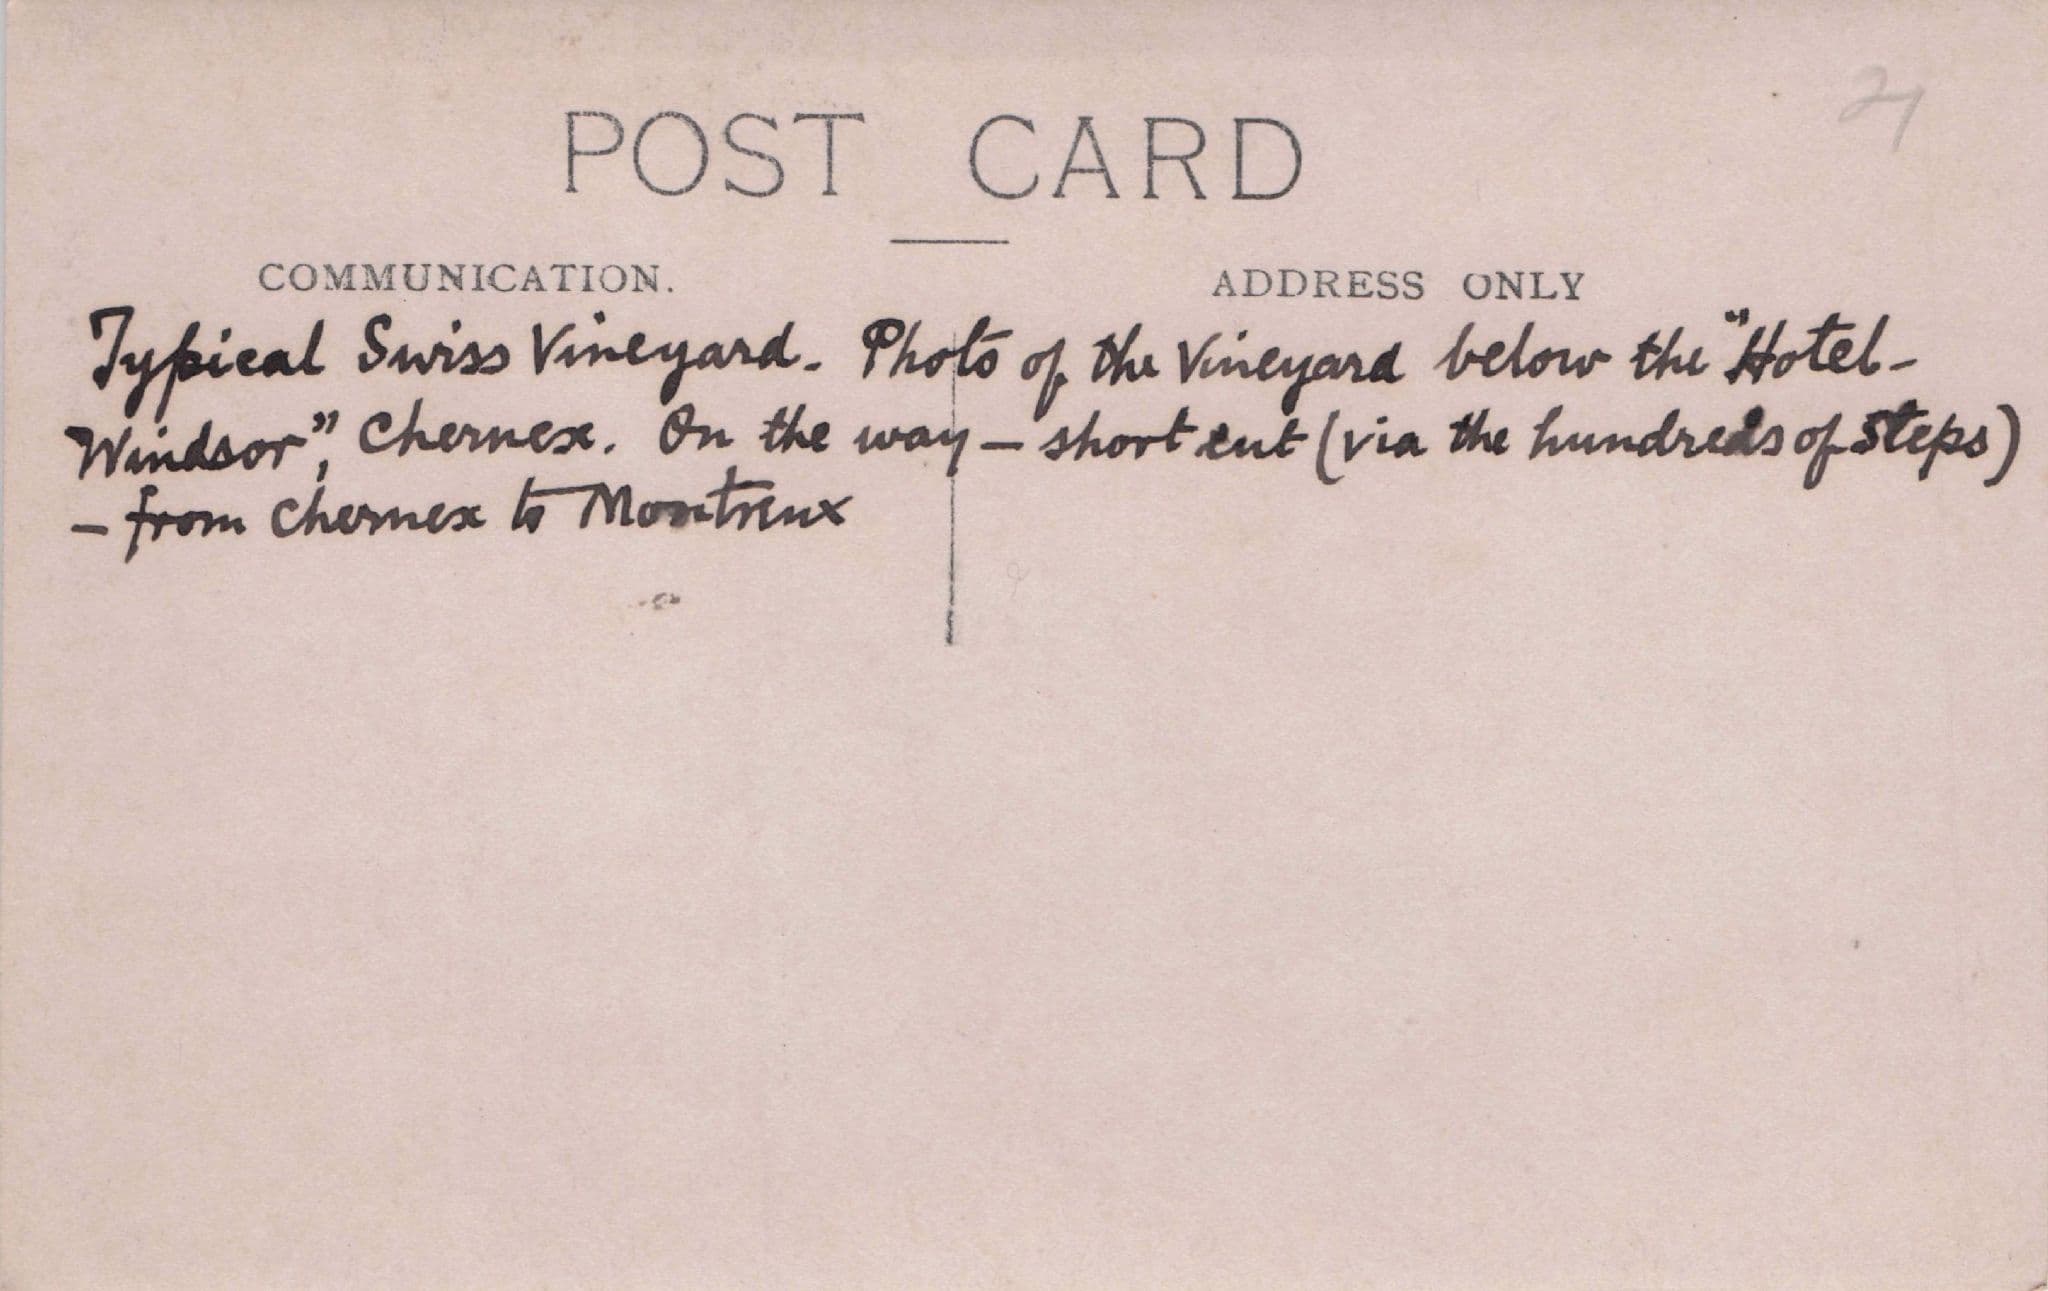 POST CARD
COMMUNICATION.
ADDRESS ONLY
Typical Swiss Vineyard. Photo of the Vineyard below the "Hotel-
Windsor", Chernex. On the way – short cut (via the hundreds of steps)
– from Chernex to Montreux